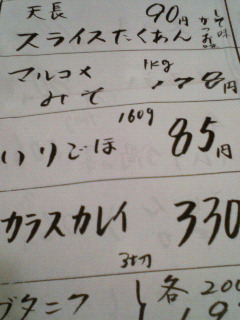 天長 90円
スライスたくあん
かつお味
して
マルコメ 1kg
みそ 178円
160g
いりごま 85円
カラスカレイ 330
3切
ブタニク 各200